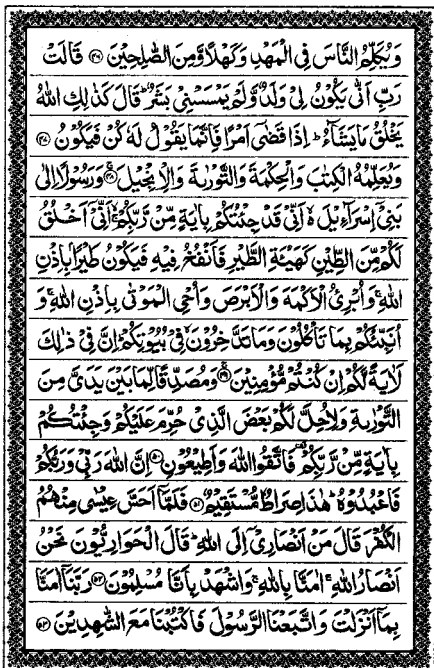 وَيُكَلِّمُ النَّاسَ فِي الْمَهْدِ وَكَهْلًا وَّمِنَ الصّٰلِحِيْنَ ۝۴۶ قَالَتْ
رَبِّ اَنّٰى يَكُوْنُ لِيْ وَلَدٌ وَّلَمْ يَمْسَسْنِيْ بَشَرٌ ؕ قَالَ كَذٰلِكِ اللّٰهُ
يَخْلُقُ مَا يَشَآءُ ؕ اِذَا قَضٰۤى اَمْرًا فَاِنَّمَا يَقُوْلُ لَهٗ كُنْ فَيَكُوْنُ ۝۴۷
وَيُعَلِّمُهُ الْكِتٰبَ وَالْحِكْمَةَ وَالتَّوْرٰىةَ وَالْاِنْجِيْلَ ۝۴۸ وَرَسُوْلًا اِلٰى
بَنِيْۤ اِسْرَآءِيْلَ ۙ اَنِّيْ قَدْ جِئْتُكُمْ بِاٰيَةٍ مِّنْ رَّبِّكُمْ ۙ اَنِّيْۤ اَخْلُقُ
لَكُمْ مِّنَ الطِّيْنِ كَهَيْـَٔةِ الطَّيْرِ فَاَنْفُخُ فِيْهِ فَيَكُوْنُ طَيْرًۢا بِاِذْنِ
اللّٰهِ ۚ وَاُبْرِئُ الْاَكْمَهَ وَالْاَبْرَصَ وَاُحْيِ الْمَوْتٰى بِاِذْنِ اللّٰهِ ۚ وَ
اُنَبِّئُكُمْ بِمَا تَاْكُلُوْنَ وَمَا تَدَّخِرُوْنَ ۙ فِيْ بُيُوْتِكُمْ ؕ اِنَّ فِيْ ذٰلِكَ
لَاٰيَةً لَّكُمْ اِنْ كُنْتُمْ مُّؤْمِنِيْنَ ۝۴۹ وَمُصَدِّقًا لِّمَا بَيْنَ يَدَيَّ مِنَ
التَّوْرٰىةِ وَلِاُحِلَّ لَكُمْ بَعْضَ الَّذِيْ حُرِّمَ عَلَيْكُمْ وَجِئْتُكُمْ
بِاٰيَةٍ مِّنْ رَّبِّكُمْ ۟ فَاتَّقُوا اللّٰهَ وَاَطِيْعُوْنِ ۝۵۰ اِنَّ اللّٰهَ رَبِّيْ وَرَبُّكُمْ
فَاعْبُدُوْهُ ؕ هٰذَا صِرَاطٌ مُّسْتَقِيْمٌ ۝۵۱ فَلَمَّاۤ اَحَسَّ عِيْسٰى مِنْهُمُ
الْكُفْرَ قَالَ مَنْ اَنْصَارِيْۤ اِلَى اللّٰهِ ؕ قَالَ الْحَوَارِيُّوْنَ نَحْنُ
اَنْصَارُ اللّٰهِ ۚ اٰمَنَّا بِاللّٰهِ ۚ وَاشْهَدْ بِاَنَّا مُسْلِمُوْنَ ۝۵۲ رَبَّنَاۤ اٰمَنَّا
بِمَاۤ اَنْزَلْتَ وَاتَّبَعْنَا الرَّسُوْلَ فَاكْتُبْنَا مَعَ الشّٰهِدِيْنَ ۝۵۳